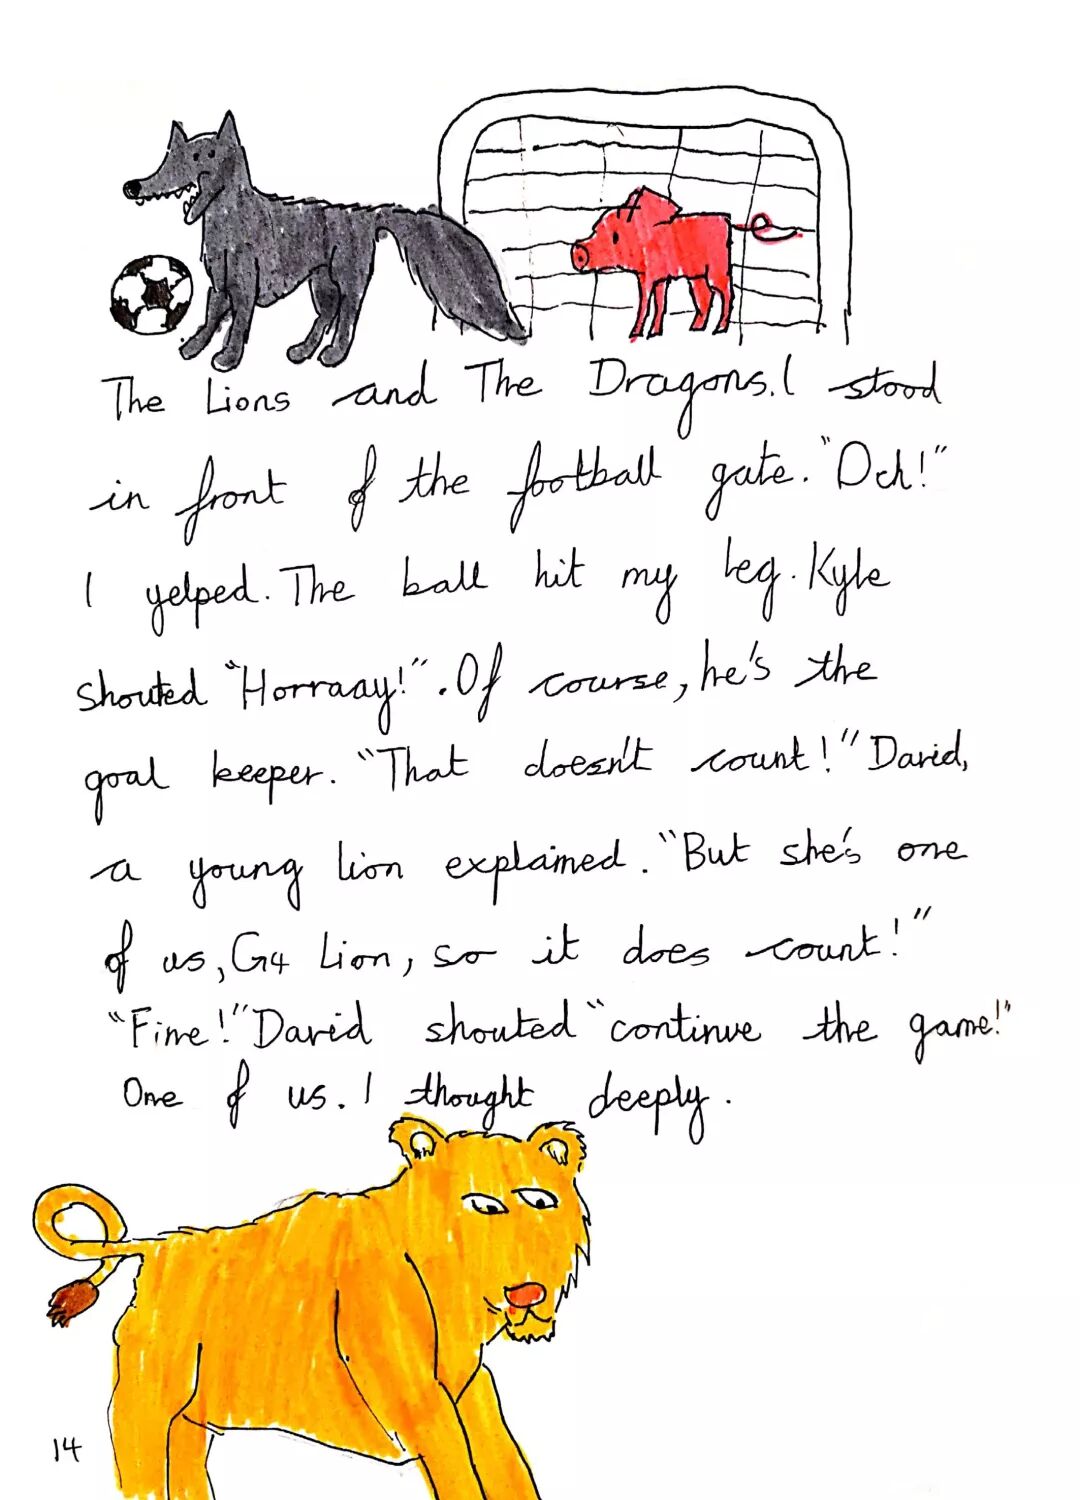 The Lions and The Dragons. I stood
in front of the football gate. "Och!"
I yelped. The ball hit my leg. Kyle
shouted "Horraay!". Of course, he's the
goal keeper. "That doesn't count!" David,
a young lion explained. "But she's one
of us, G4 Lion, so it does count!"
"Fine!" David shouted "continue the game!"
One of us. I thought deeply.
14